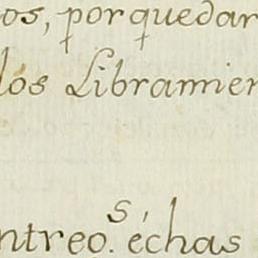 os, por quedar
los Libramien
ntreo. s, échas